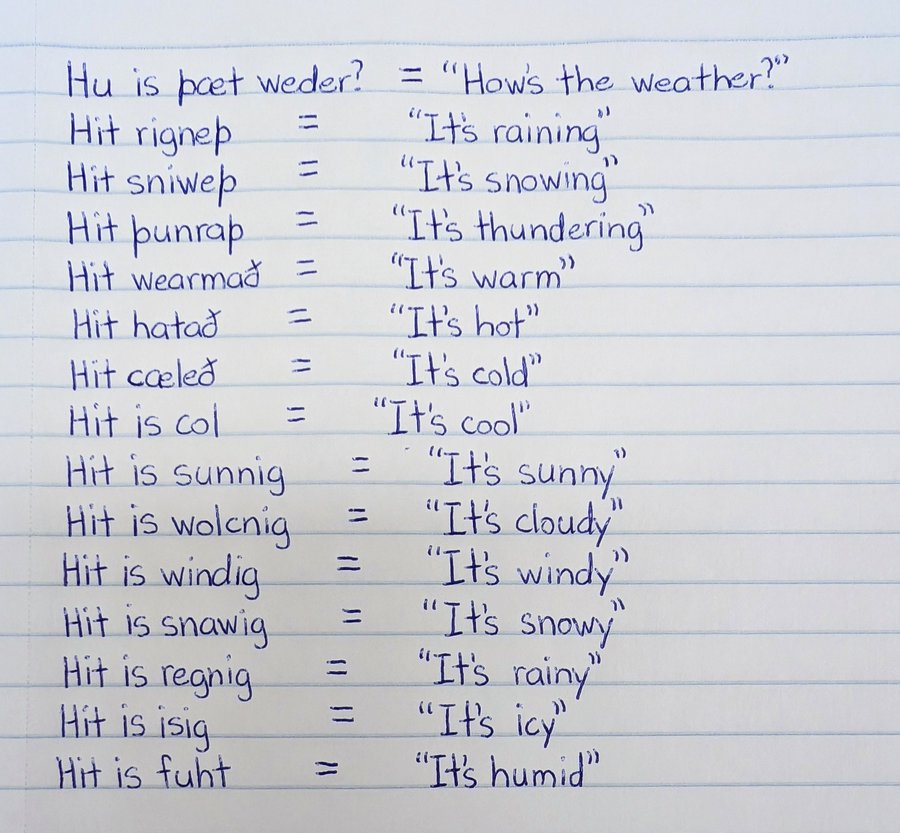 Hu is þæt weder? = "How's the weather?"
Hit rigneþ = "It's raining"
Hit sniweþ = "It's snowing"
Hit þunraþ = "It's thundering"
Hit wearmað = "It's warm"
Hit hatað = "It's hot"
Hit cæleð = "It's cold"
Hit is col = "It's cool"
Hit is sunnig = "It's sunny"
Hit is wolcnig = "It's cloudy"
Hit is windig = "It's windy"
Hit is snawig = "It's snowy"
Hit is regnig = "It's rainy"
Hit is isig = "It's icy"
Hit is fuht = "It's humid"